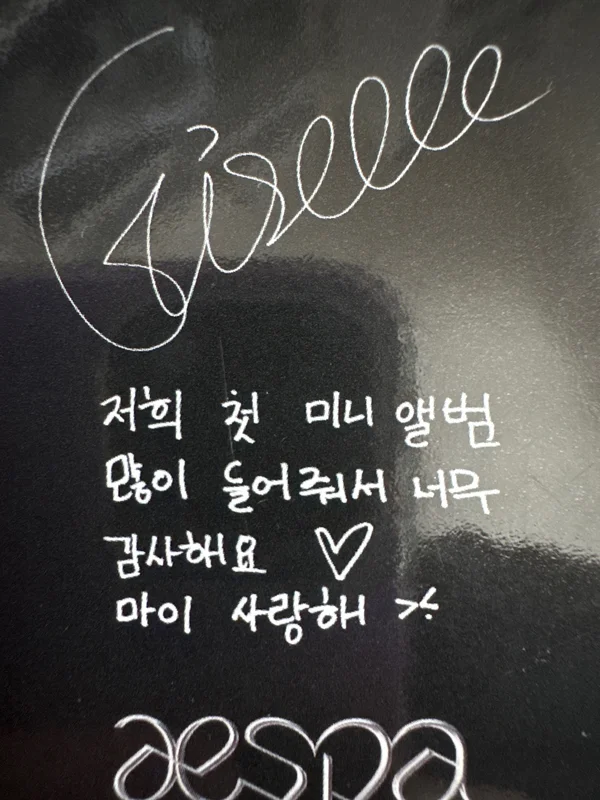 Giselle
저희 첫 미니 앨범
많이 들어줘서 너무
감사해요 ♡
마이 사랑해
aespa